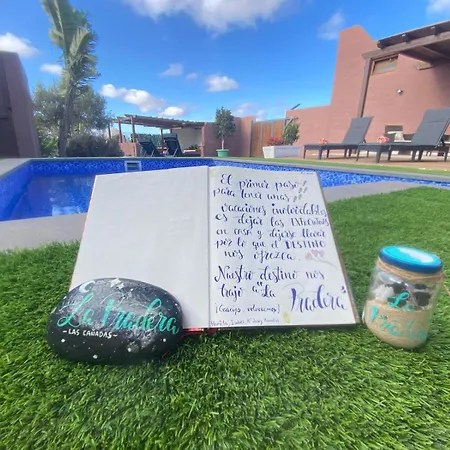 El primer paso
para tener unas
vacaciones inolvidables
es dejar las EXPECTATIVAS
en casa y dejarse llevar
por lo que el DESTINO
nos ofrezca.
Nuestro destino nos
trajo a "La
Pradera"
La Pradera
- LAS CAÑADAS -
La
Pradera